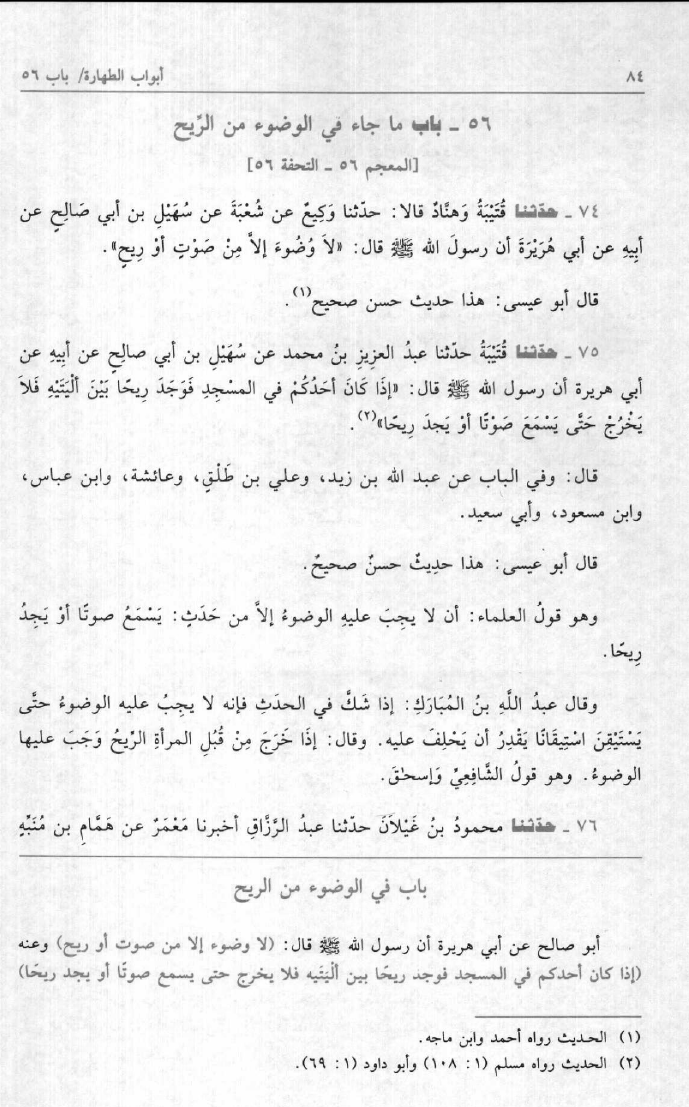 ٨٤ أبواب الطهارة/ باب ٥٦
٥٦ ـ باب ما جاء في الوضوء من الرِّيح
[المعجم ٥٦ ـ التحفة ٥٦]
٧٤ ـ حدّثنا قُتَيْبَةُ وَهنَّادٌ قالا: حدّثنا وَكِيعٌ عن شُعْبَةَ عن سُهَيْلِ بن أبي صَالِحٍ عن
أبِيهِ عن أبي هُرَيْرَةَ أن رسولَ الله ﷺ قال: «لاَ وُضُوءَ إلاَّ مِنْ صَوْتٍ أوْ رِيحٍ».
قال أبو عيسى: هذا حديث حسن صحيح(١).
٧٥ ـ حدّثنا قُتَيْبَةُ حدّثنا عبدُ العزِيزِ بنُ محمد عن سُهَيْلِ بن أبي صالِحٍ عن أبِيهِ عن
أبي هريرة أن رسول الله ﷺ قال: «إذَا كَانَ أحَدُكُمْ في المسْجِدِ فَوَجَدَ رِيحًا بَيْنَ ألْيَتَيْهِ فَلاَ
يَخْرُجْ حَتَّى يَسْمَعَ صَوْتًا أوْ يَجدَ رِيحًا»(٢).
قال: وفي الباب عن عبد الله بن زيد، وعلي بن طَلْقٍ، وعائشة، وابن عباس،
وابن مسعود، وأبي سعيد.
قال أبو عيسى: هذا حدِيثٌ حسنٌ صحيحٌ.
وهو قولُ العلماء: أن لا يجِبَ عليهِ الوضوءُ إلاَّ من حَدَثٍ: يَسْمَعُ صوتًا أوْ يَجِدُ
رِيحًا.
وقال عبدُ اللَّهِ بنُ المُبَارَكِ: إذا شَكَّ في الحدَثِ فإنه لا يجِبُ عليه الوضوءُ حتَّى
يَسْتَيْقِنَ اسْتِيقَانًا يَقْدِرُ أن يَحْلِفَ عليه. وقال: إذَا خَرَجَ مِنْ قُبُلِ المرأةِ الرِّيحُ وَجَبَ عليها
الوضوءُ. وهو قولُ الشَّافِعِيِّ وَإسحٰقَ.
٧٦ ـ حدّثنا محمودُ بنُ غَيْلاَنَ حدّثنا عبدُ الرَّزَّاقِ أخبرنا مَعْمَرٌ عن هَمَّامِ بن مُنَبِّهٍ
باب في الوضوء من الريح
أبو صالح عن أبي هريرة أن رسول الله ﷺ قال: (لا وضوء إلا من صوت أو ريح) وعنه
(إذا كان أحدكم في المسجد فوجد ريحًا بين ألْيَتَيه فلا يخرج حتى يسمع صوتًا أو يجد ريحًا)
(١) الحديث رواه أحمد وابن ماجه.
(٢) الحديث رواه مسلم (١: ١٠٨) وأبو داود (١: ٦٩).